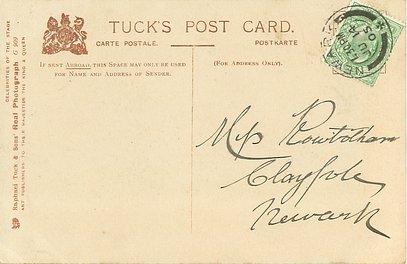 TUCK'S POST CARD.
CARTE POSTALE.
POSTKARTE
IF SENT ABROAD, THIS SPACE MAY ONLY BE USED
FOR NAME AND ADDRESS OF SENDER.
(FOR ADDRESS ONLY).
CELEBRITIES OF THE STAGE
Raphael Tuck & Sons' Real Photograph G 909
ART PUBLISHERS TO THEIR MAJESTIES THE KING & QUEEN
NEWARK
05
Miss Rowbotham
Claypole
Newark